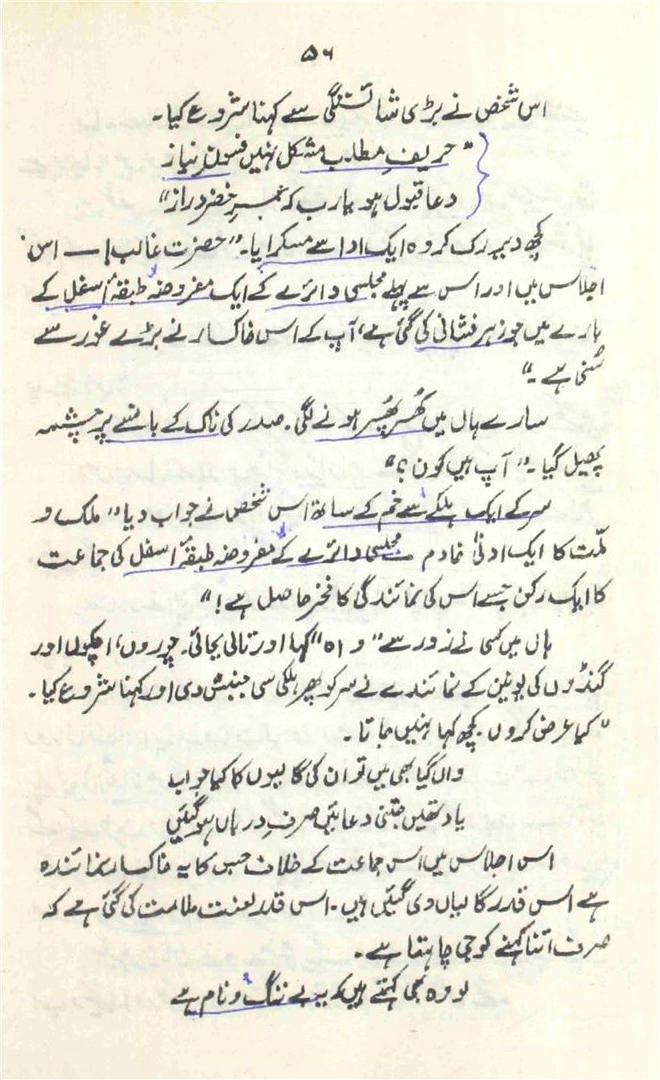 ۵۶
اس شخص نے بڑی شائستگی سے کہنا شروع کیا۔
"حریفِ مطلب مشکل نہیں فسونِ نیاز
دعا قبول ہو یارب کہ عمرِ خضر دراز"
کچھ دیر رک کر وہ ایک ادا سے مسکرایا۔ "حضرت غالب! — اس
اجلاس میں اور اس سے پہلے مجلسی دائرے کے ایک مفروضہ طبقۂ اسفل کے
بارے میں جو زہر فشانی کی گئی ہے، آپ کے اس خاکسار نے بڑے غور سے
سُنی ہے۔"
سارے ہال میں کُھسر پُھسر ہونے لگی۔ صدر کی ناک کے بانسے پر چشمہ
پھیل گیا۔ "آپ ہیں کون؟"
سر کے ایک ہلکے سے خم کے ساتھ اس شخص نے جواب دیا "ملک و
ملّت کا ایک ادنیٰ خادم مجلسی دائرے کے مفروضہ طبقۂ اسفل کی جماعت
کا ایک رکن جسے اس کی نمائندگی کا فخر حاصل ہے!"
ہال میں کسی نے زور سے "واہ" کہا اور تالی بجائی۔ چوروں، اچکوں اور
گنڈوں کی یونین کے نمائندے نے سر کو پھر ہلکی سی جنبش دی اور کہنا شروع کیا۔
"کیا عرض کروں۔ کچھ کہا نہیں جاتا۔
واں گیا بھی میں تو ان کی گالیوں کا کیا جواب
یاد تھیں جتنی دعائیں صرفِ درباں ہو گئیں
اس اجلاس میں اُس جماعت کے خلاف جس کا یہ خاکسار نمائندہ
ہے اس قدر گالیاں دی گئیں ہیں۔ اس قدر لعنت ملامت کی گئی ہے کہ
صرف اتنا کہنے کو جی چاہتا ہے۔
لو وہ بھی کہتے ہیں کہ یہ بے ننگ و نام ہے